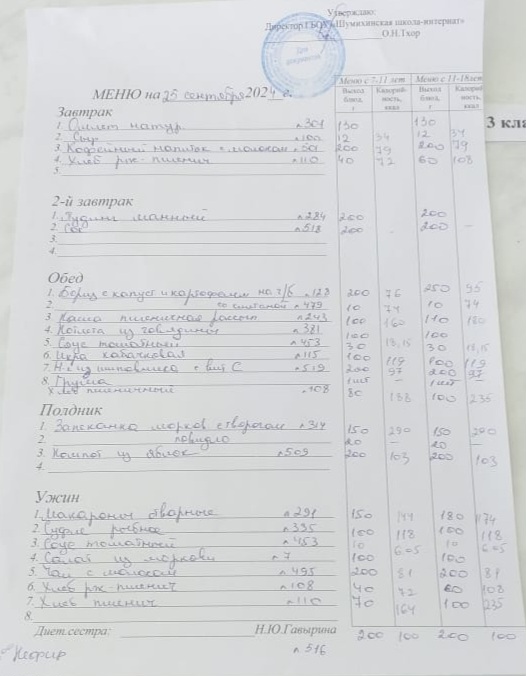 Утверждаю:
Директор ГБОУ «Шумихинская школа-интернат»
О.Н.Тхор
Для документов
МЕНЮ на 25 сентября 2024 г.
Меню с 7-11 лет Меню с 11-18лет
Выход блюд, г Калорий-ность, ккал Выход блюд, г Калорий-ность, ккал
3 кла
Завтрак
1. Омлет натур. л.301 150 150
2. Сыр л.100 12 34 12 34
3. Кофейный напиток с молоком л.501 200 79 200 79
4. Хлеб рж-пшенич л.110 40 72 60 108
5.
2-й завтрак
1. Пудинг манный л.284 200 200
2. Сок л.518 200 - 200 -
3.
4.
Обед
1. Борщ с капуст и картофелем на м/б л.128 200 76 250 95
2. со сметаной л.479 10 74 10 74
3. Каша пшеничная рассып л.243 100 160 110 180
4. Котлета из говядины л.381 100 100
5. Соус томатный л.453 30 18,15 30 18,15
6. Икра кабачковая л.115 100 119 100 119
7. Н-к из шиповника с вит С л.519 200 97 200 97
8. Груша 1шт - 1шт -
Хлеб пшеничный л.108 80 188 100 235
Полдник
1. Запеканка морков с творогом л.314 150 290 150 290
2. повидло 20 - 20 -
3. Компот из яблок л.509 200 103 200 103
4.
Ужин
1. Макароны отварные л.291 150 144 180 174
2. Суфле рыбное л.335 100 118 100 118
3. Соус томатный л.453 10 6.05 10 6.05
4. Салат из моркови л.7 100 100
5. Чай с молоком л.495 200 81 200 81
6. Хлеб рж-пшенич л.108 40 72 60 108
7. Хлеб пшенич л.110 70 164 100 235
8.
Диет.сестра: Н.Ю.Гавырина 200 100 200 100
Кефир л.516